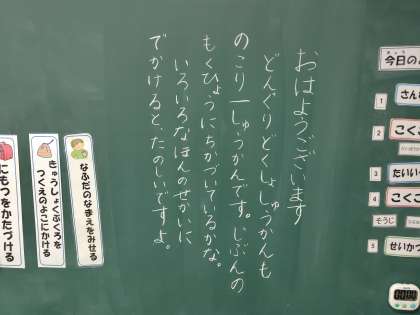 おはようございます
どんぐりどくしょしゅうかんも
のこり一しゅうかんです。じぶんの
もくひょうにちかづいているかな。
いろいろなほんのせかいに
でかけると、たのしいですよ。
なふだのなまえをみせる
きゅうしょくぶくろを
つくえのよこにかける
にもつをかたづける
今日の
1 さん
2 こくご
3 たいい
4 こくご
そうじ
5 せいかつ